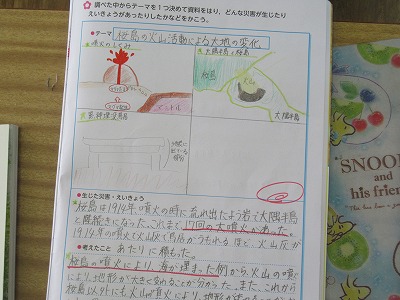 調べた中からテーマを1つ決めて資料をはり、どんな災害が生じたり
えいきょうがあったりしたかなどをかこう。
●テーマ 桜島の火山活動による大地の変化
噴火のしくみ
大隅半島と桜島
桜島
マグマ
マントル
大隅半島
黒神埋没鳥居
●生じた災害・えいきょう
桜島は1914年、噴火の時に流れ出たよう岩で大隅半島
と陸続きになった。これまで、17回の大噴火があった。
1914年の噴火で火山灰で鳥居がうもれるほど、火山灰が
あたりに積もった。
●考えたこと
桜島の噴火により、海が埋まった例から、火山の噴
火により、地形が大きく変わることが分かった。また、これから
桜島以外にも火山の噴火により、地形が
SNOOPY
and
his friends